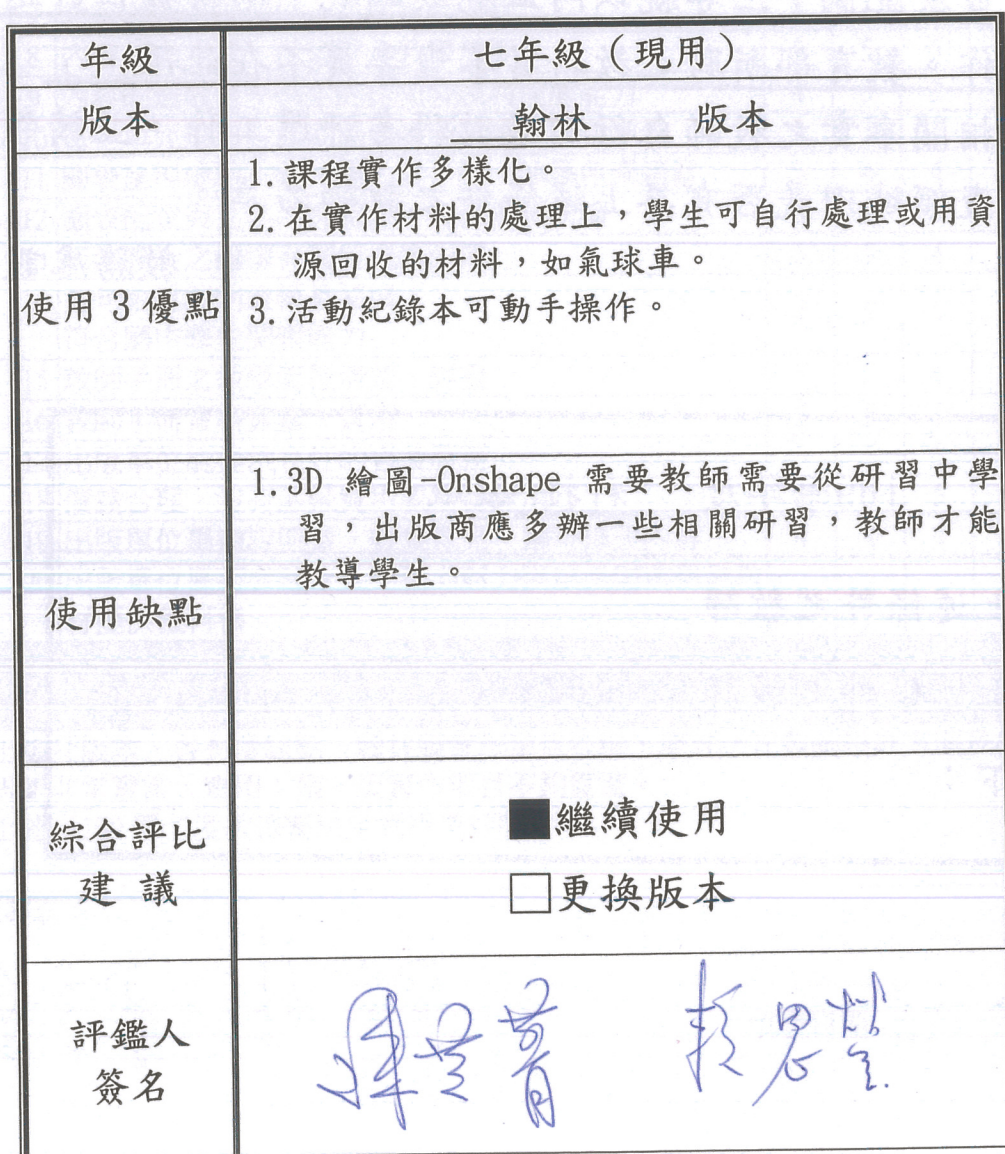 年級 七年級（現用）
版本 翰林 版本
使用 3 優點
1. 課程實作多樣化。
2. 在實作材料的處理上，學生可自行處理或用資
源回收的材料，如氣球車。
3. 活動紀錄本可動手操作。
使用缺點
1. 3D 繪圖-Onshape 需要教師需要從研習中學
習，出版商應多辦一些相關研習，教師才能
教導學生。
綜合評比
建 議
■繼續使用
□更換版本
評鑑人
簽名